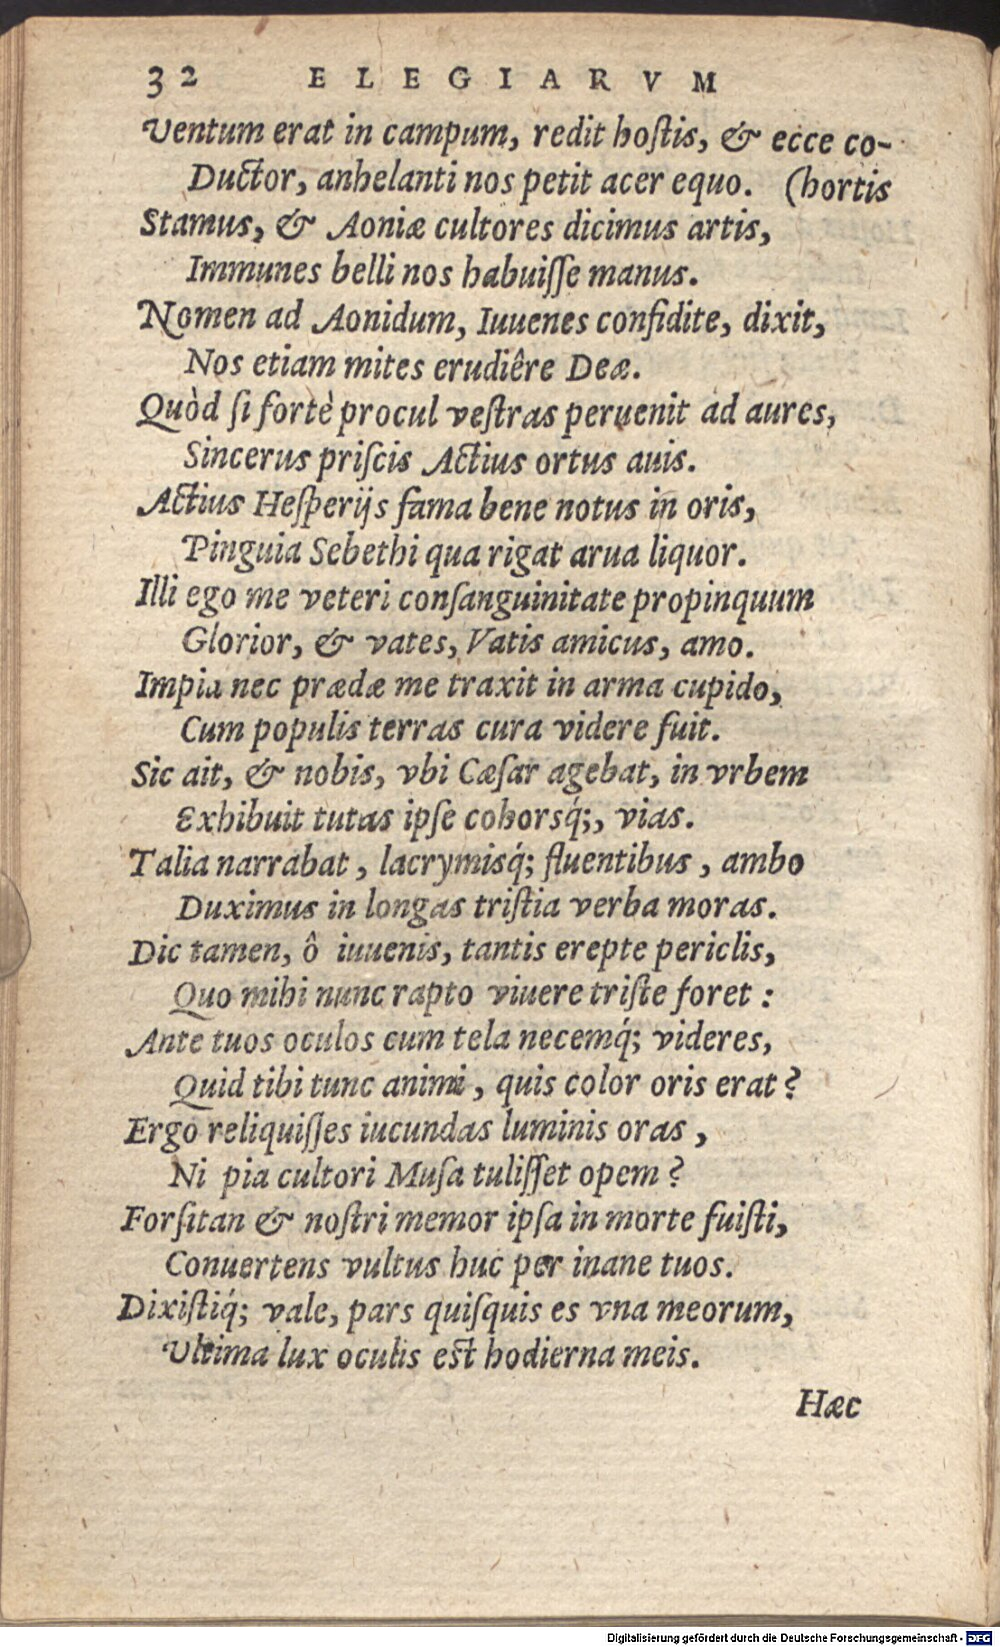 32 ELEGIARVM
Ventum erat in campum, redit hoſtis, & ecce co-
Ductor, anhelanti nos petit acer equo. (hortis
Stamus, & Aoniæ cultores dicimus artis,
Immunes belli nos habuiſſe manus.
Nomen ad Aonidum, Iuuenes confidite, dixit,
Nos etiam mites erudiêre Deæ.
Quòd ſi fortè procul veſtras peruenit ad aures,
Sincerus priſcis Actius ortus auis.
Actius Heſperijs fama bene notus in oris,
Pinguia Sebethi qua rigat arua liquor.
Illi ego me veteri conſanguinitate propinquum
Glorior, & vates, Vatis amicus, amo.
Impia nec prædæ me traxit in arma cupido,
Cum populis terras cura videre fuit.
Sic ait, & nobis, vbi Cæſar agebat, in vrbem
Exhibuit tutas ipſe cohorsq́;, vias.
Talia narrabat, lacrymisq́; fluentibus, ambo
Duximus in longas triſtia verba moras.
Dic tamen, ô iuuenis, tantis erepte periclis,
Quo mihi nunc rapto viuere triſte foret:
Ante tuos oculos cum tela necemq́; videres,
Quid tibi tunc animi, quis color oris erat?
Ergo reliquiſſes iucundas luminis oras,
Ni pia cultori Muſa tuliſſet opem?
Forſitan & noſtri memor ipſa in morte fuiſti,
Conuertens vultus huc per inane tuos.
Dixiſtiq́; vale, pars quiſquis es vna meorum,
Vltima lux oculis eſt hodierna meis.
Hæc
Digitalisierung gefördert durch die Deutsche Forschungsgemeinschaft - DFG